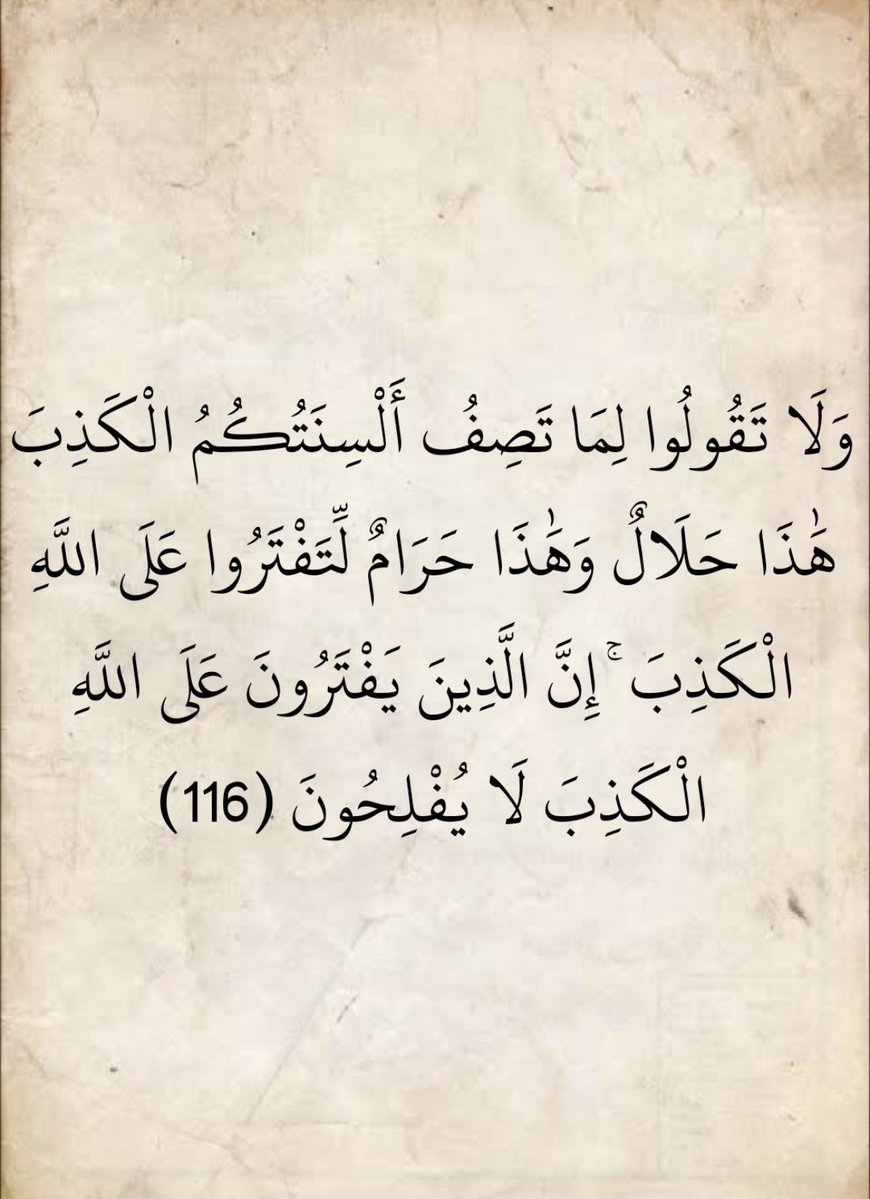 وَلَا تَقُولُوا لِمَا تَصِفُ أَلْسِنَتُكُمُ الْكَذِبَ
هَٰذَا حَلَالٌ وَهَٰذَا حَرَامٌ لِّتَفْتَرُوا عَلَى اللَّهِ
الْكَذِبَ ۚ إِنَّ الَّذِينَ يَفْتَرُونَ عَلَى اللَّهِ
الْكَذِبَ لَا يُفْلِحُونَ (116)